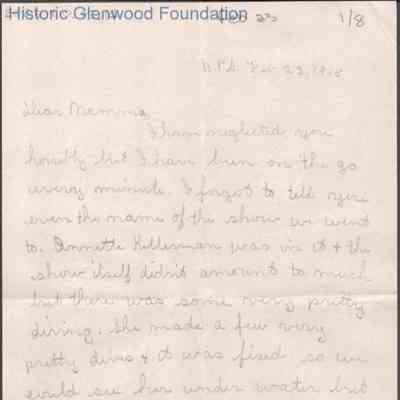 Historic Glenwood Foundation
Feb 23 1/8
Feb 23, 1918
Dear Mamma,
I have neglected you
horribly but I have been on the go
every minute. I forgot to tell you
even the name of the show we went
to. Annette Kellerman was in it + the
show itself didn't amount to much
but there was some very pretty
diving. She made a few very
pretty dives + it was fixed so we
could see her under water but